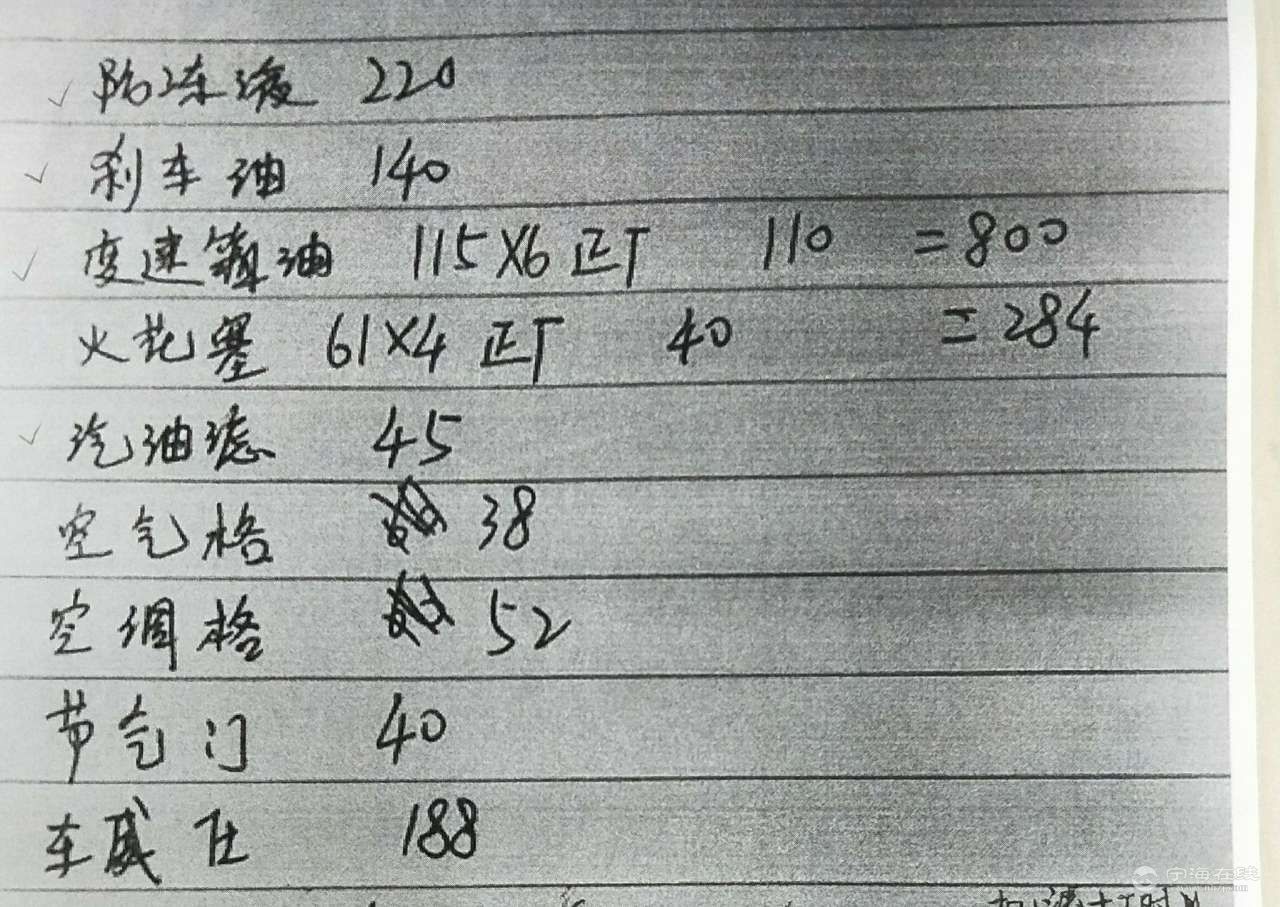 ✓ 防冻液 220
✓ 刹车油 140
✓ 变速箱油 115X6 工时 110 =800
火花塞 61X4 工时 40 =284
✓ 汽油滤 45
空气格 38
空调格 52
节气门 40
车威仕 188
宁海在线